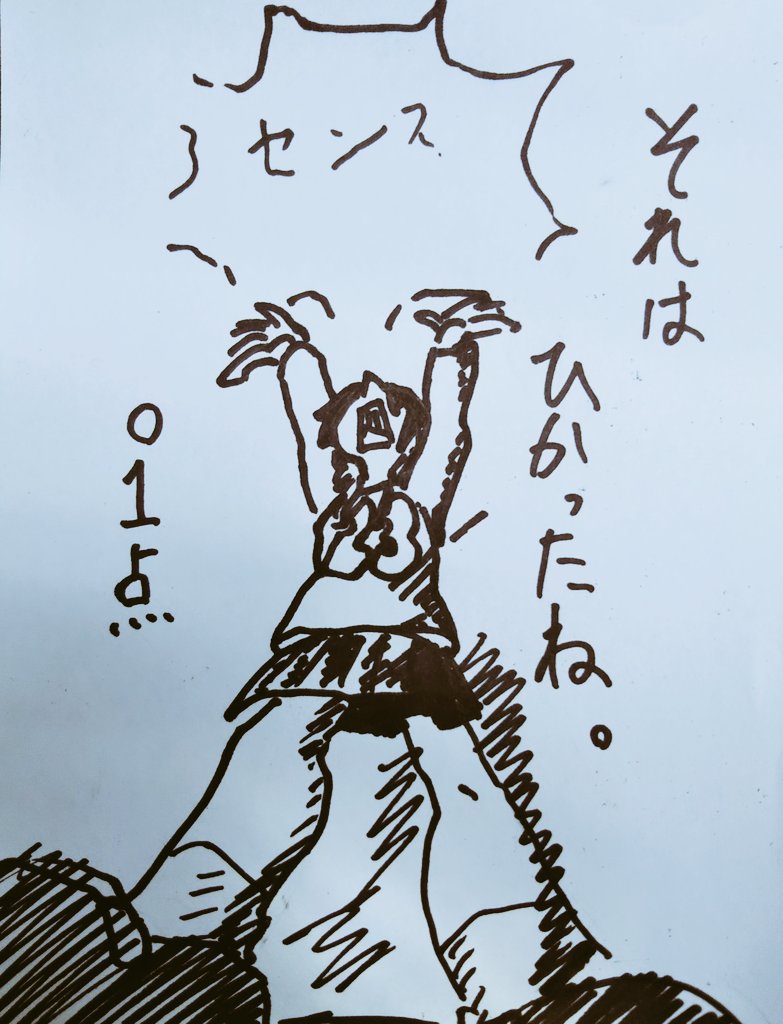 それは
ひかったね。
センス
01点